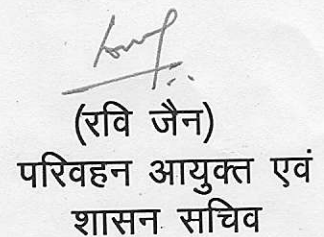 (रवि जैन)
परिवहन आयुक्त एवं
शासन सचिव